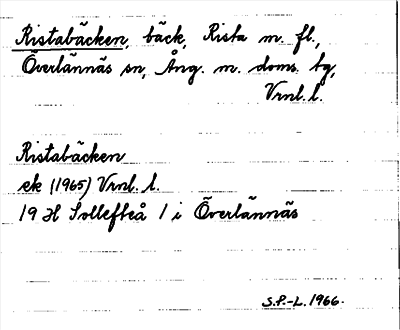 Ristabäcken, bäck, Rista m. fl.,
Överlännäs sn, Ång. m. doms. bg,
Vrnl. l.
Ristabäcken
ek (1965) Vrnl. l.
19 H Sollefteå 1 i Överlännäs
S.P.-L. 1966.